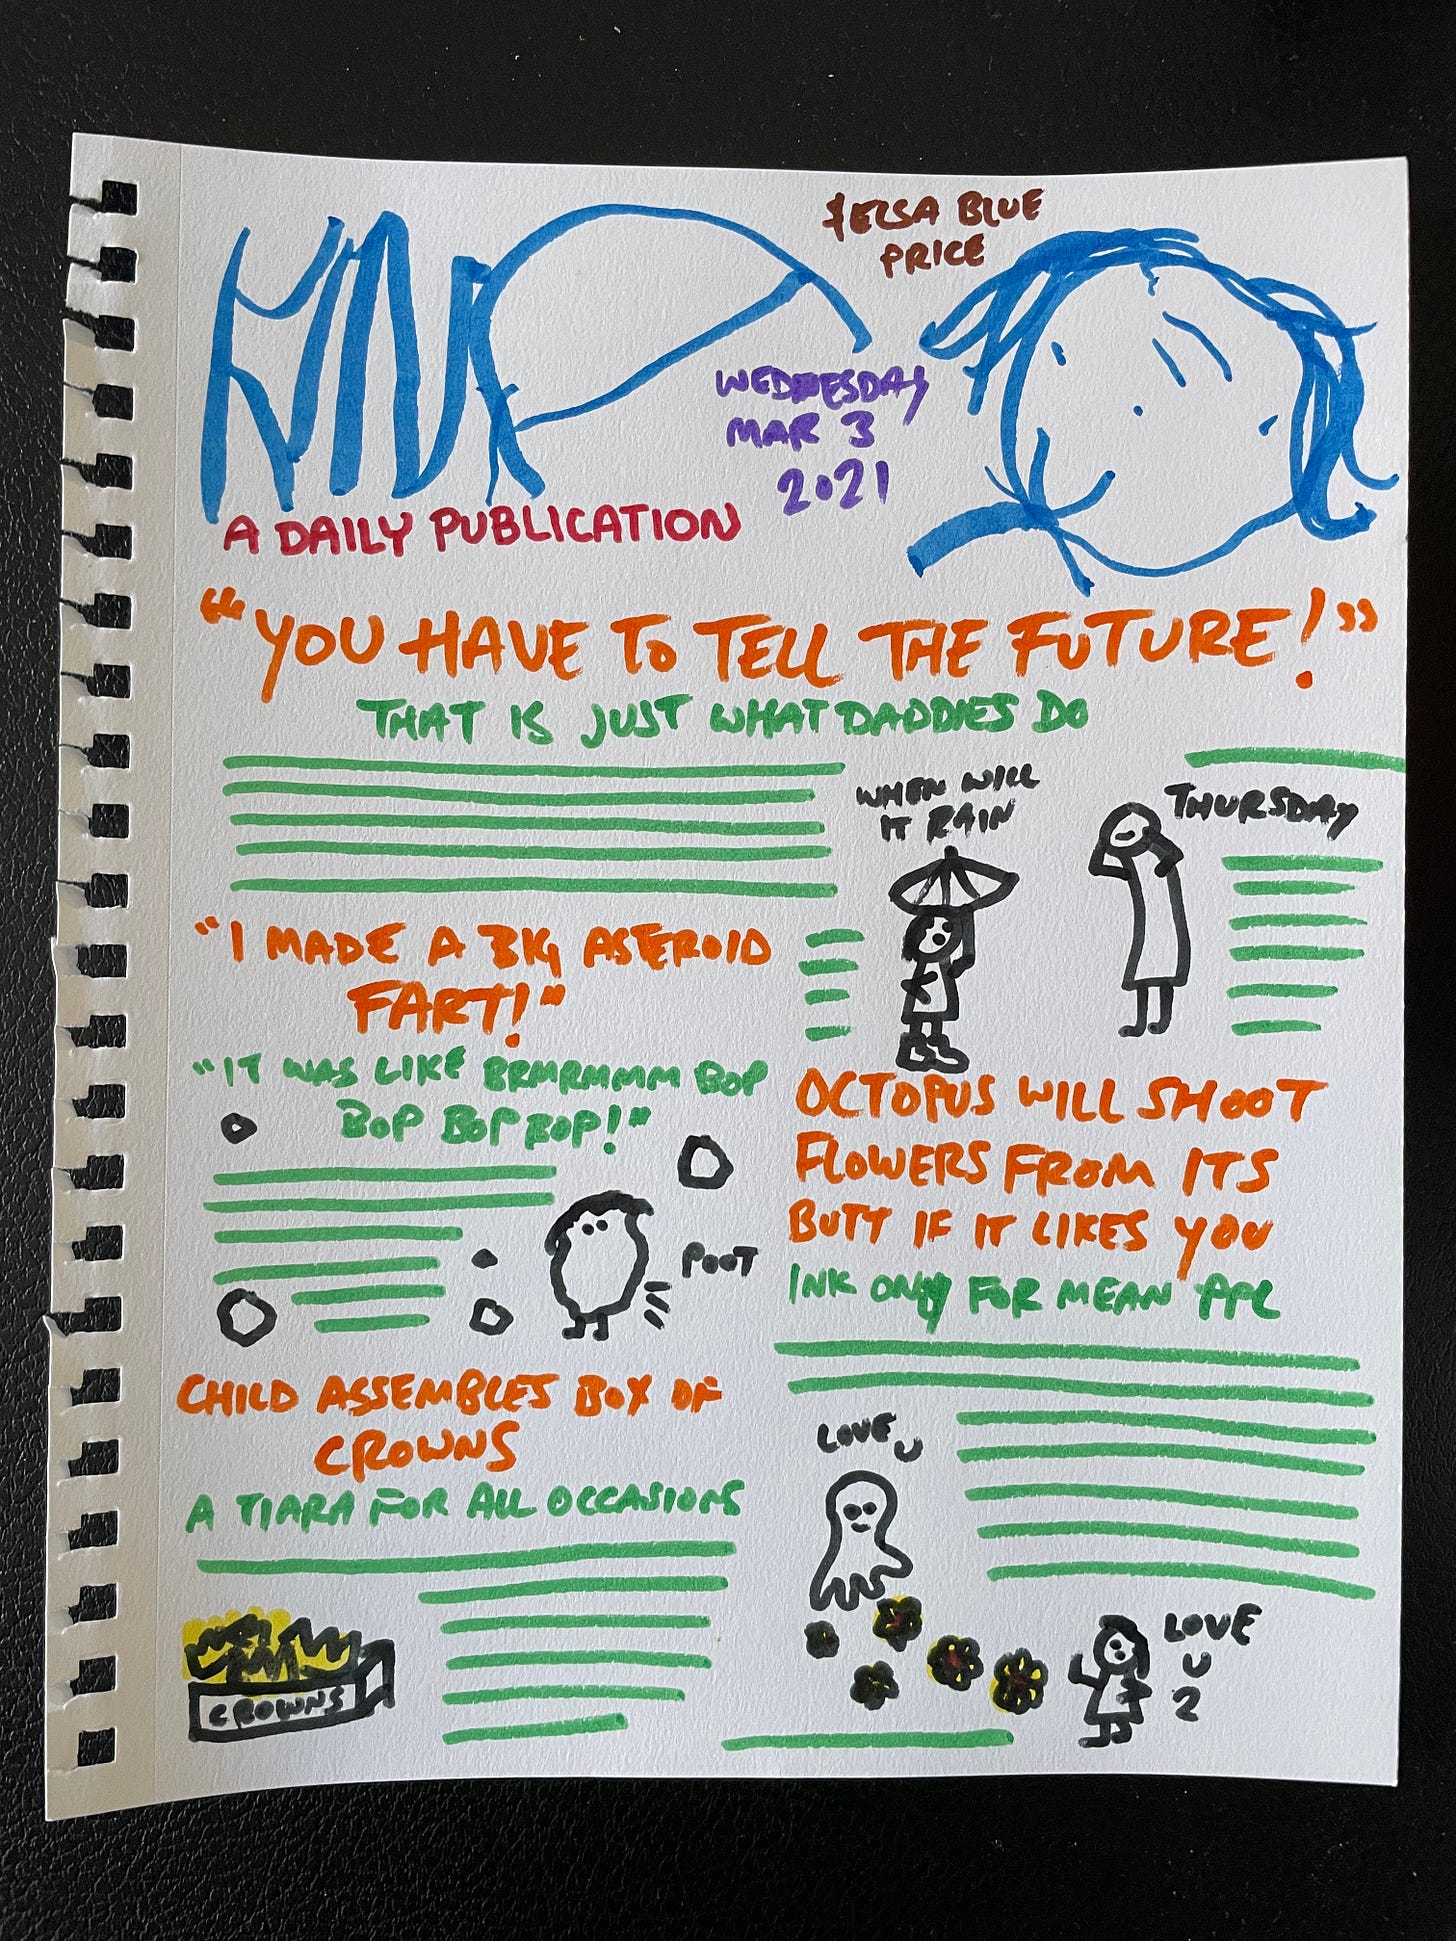 $ELSA BLUE
PRICE
WEDNESDAY
MAR 3
2021
A DAILY PUBLICATION
"YOU HAVE TO TELL THE FUTURE!"
THAT IS JUST WHAT DADDIES DO
WHEN WILL
IT RAIN
THURSDAY
"I MADE A BIG ASTEROID
FART!"
"IT WAS LIKE BRMRMMM BOP
BOP BOP BOP!"
POOT
CHILD ASSEMBLES BOX OF
CROWNS
A TIARA FOR ALL OCCASIONS
CROWNS
OCTOPUS WILL SHOOT
FLOWERS FROM ITS
BUTT IF IT LIKES YOU
INK ONLY FOR MEAN PPL
LOVE
U
LOVE
U
2